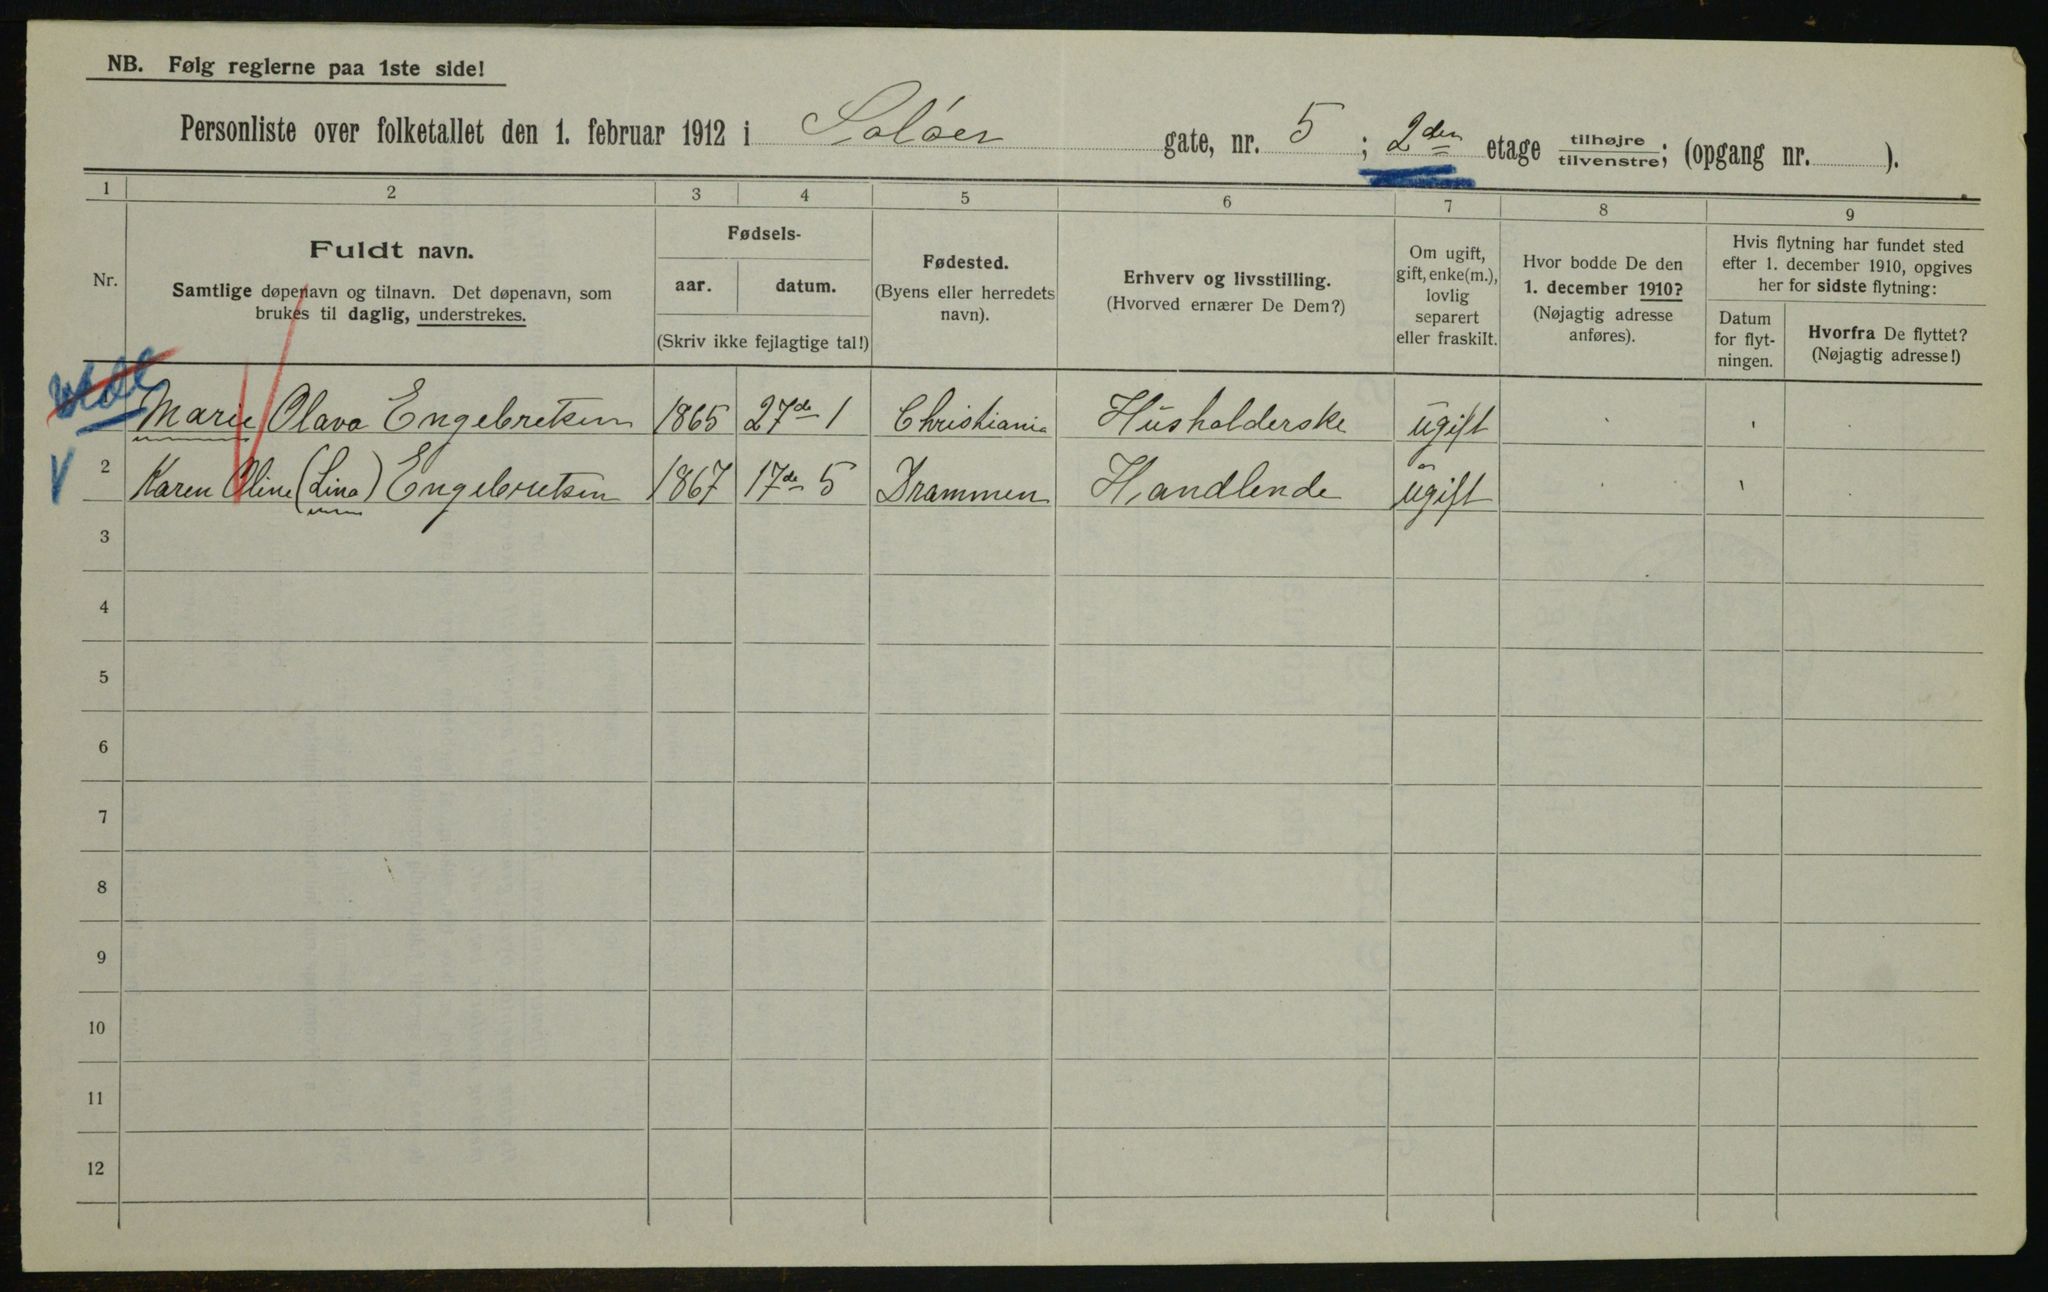 NB. Følg reglerne paa 1ste side!
Personliste over folketallet den 1. februar 1912 i Solóer gate, nr. 5; 2den etage tilhøjre/tilvenstre; (opgang nr. ).
1 2 3 4 5 6 7 8 9
Nr.
Fuldt navn.
Samtlige døpenavn og tilnavn. Det døpenavn, som
brukes til daglig, understrekes.
Fødsels-
aar. datum.
(Skriv ikke fejlagtige tal!)
Fødested.
(Byens eller herredets
navn).
Erhverv og livsstilling.
(Hvorved ernærer De Dem?)
Om ugift,
gift, enke(m.),
lovlig
separert
eller fraskilt.
Hvor bodde De den
1. december 1910?
(Nøjagtig adresse
anføres).
Hvis flytning har fundet sted
efter 1. december 1910, opgives
her for sidste flytning:
Datum
for flyt-
ningen.
Hvorfra De flyttet?
(Nøjagtig adresse!)
Marie Olava Engebretsen 1865 27de 1 Christiania Husholderske ugift
2 Karen Oline (Lina) Engebretsen 1867 17de 5 Drammen Handlende ugift
3
4
5
6
7
8
9
10
11
12